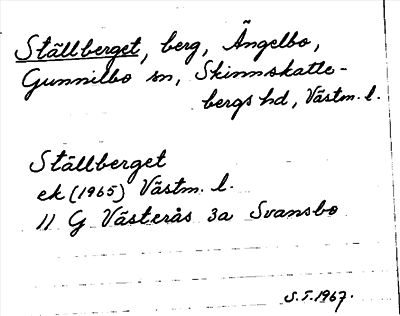 Ställberget, berg, Ängelbo,
Gunnilbo sn, Skinnskatte-
bergs hd, Västm. l.
Ställberget
ek (1965) Västm. l.
11 G Västerås 3a Svansbo
S.T. 1967.